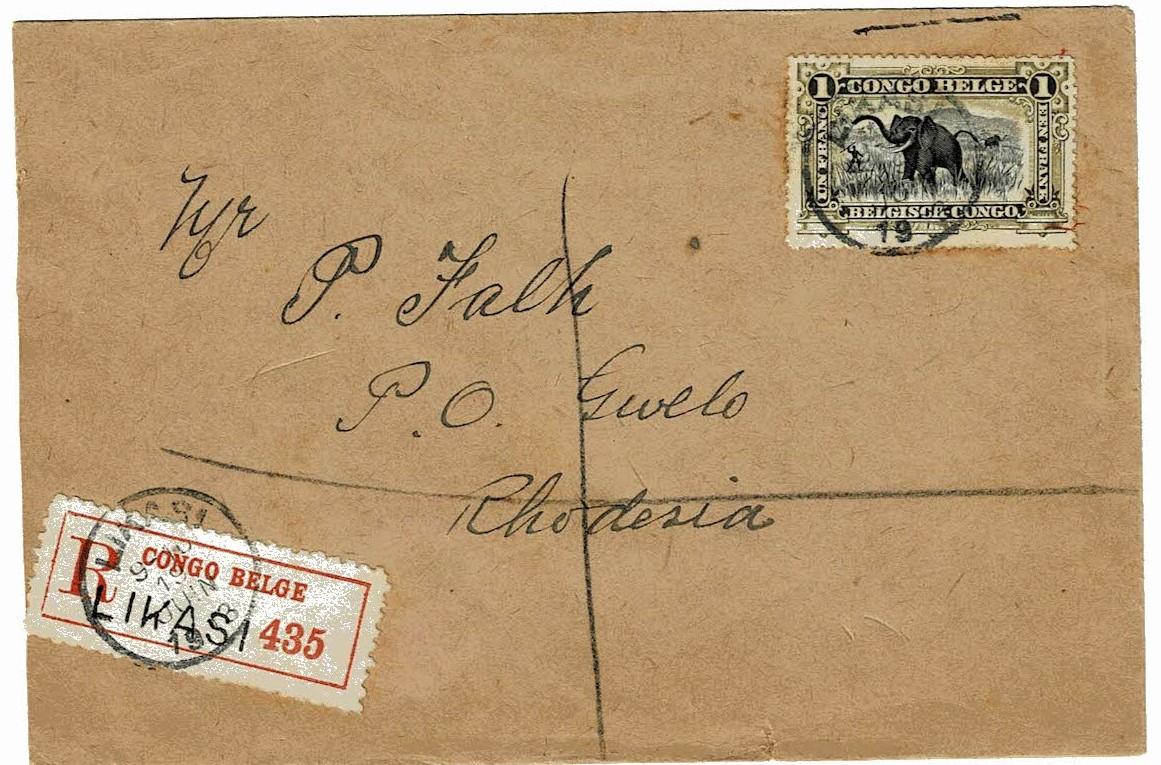 1 CONGO BELGE 1
UN FRANC
EEN FRANK
BELGISCH-CONGO
19
P. Falk
P.O. Gwelo
Rhodesia
LIKASI
JUIN
R CONGO BELGE
LIKASI 435